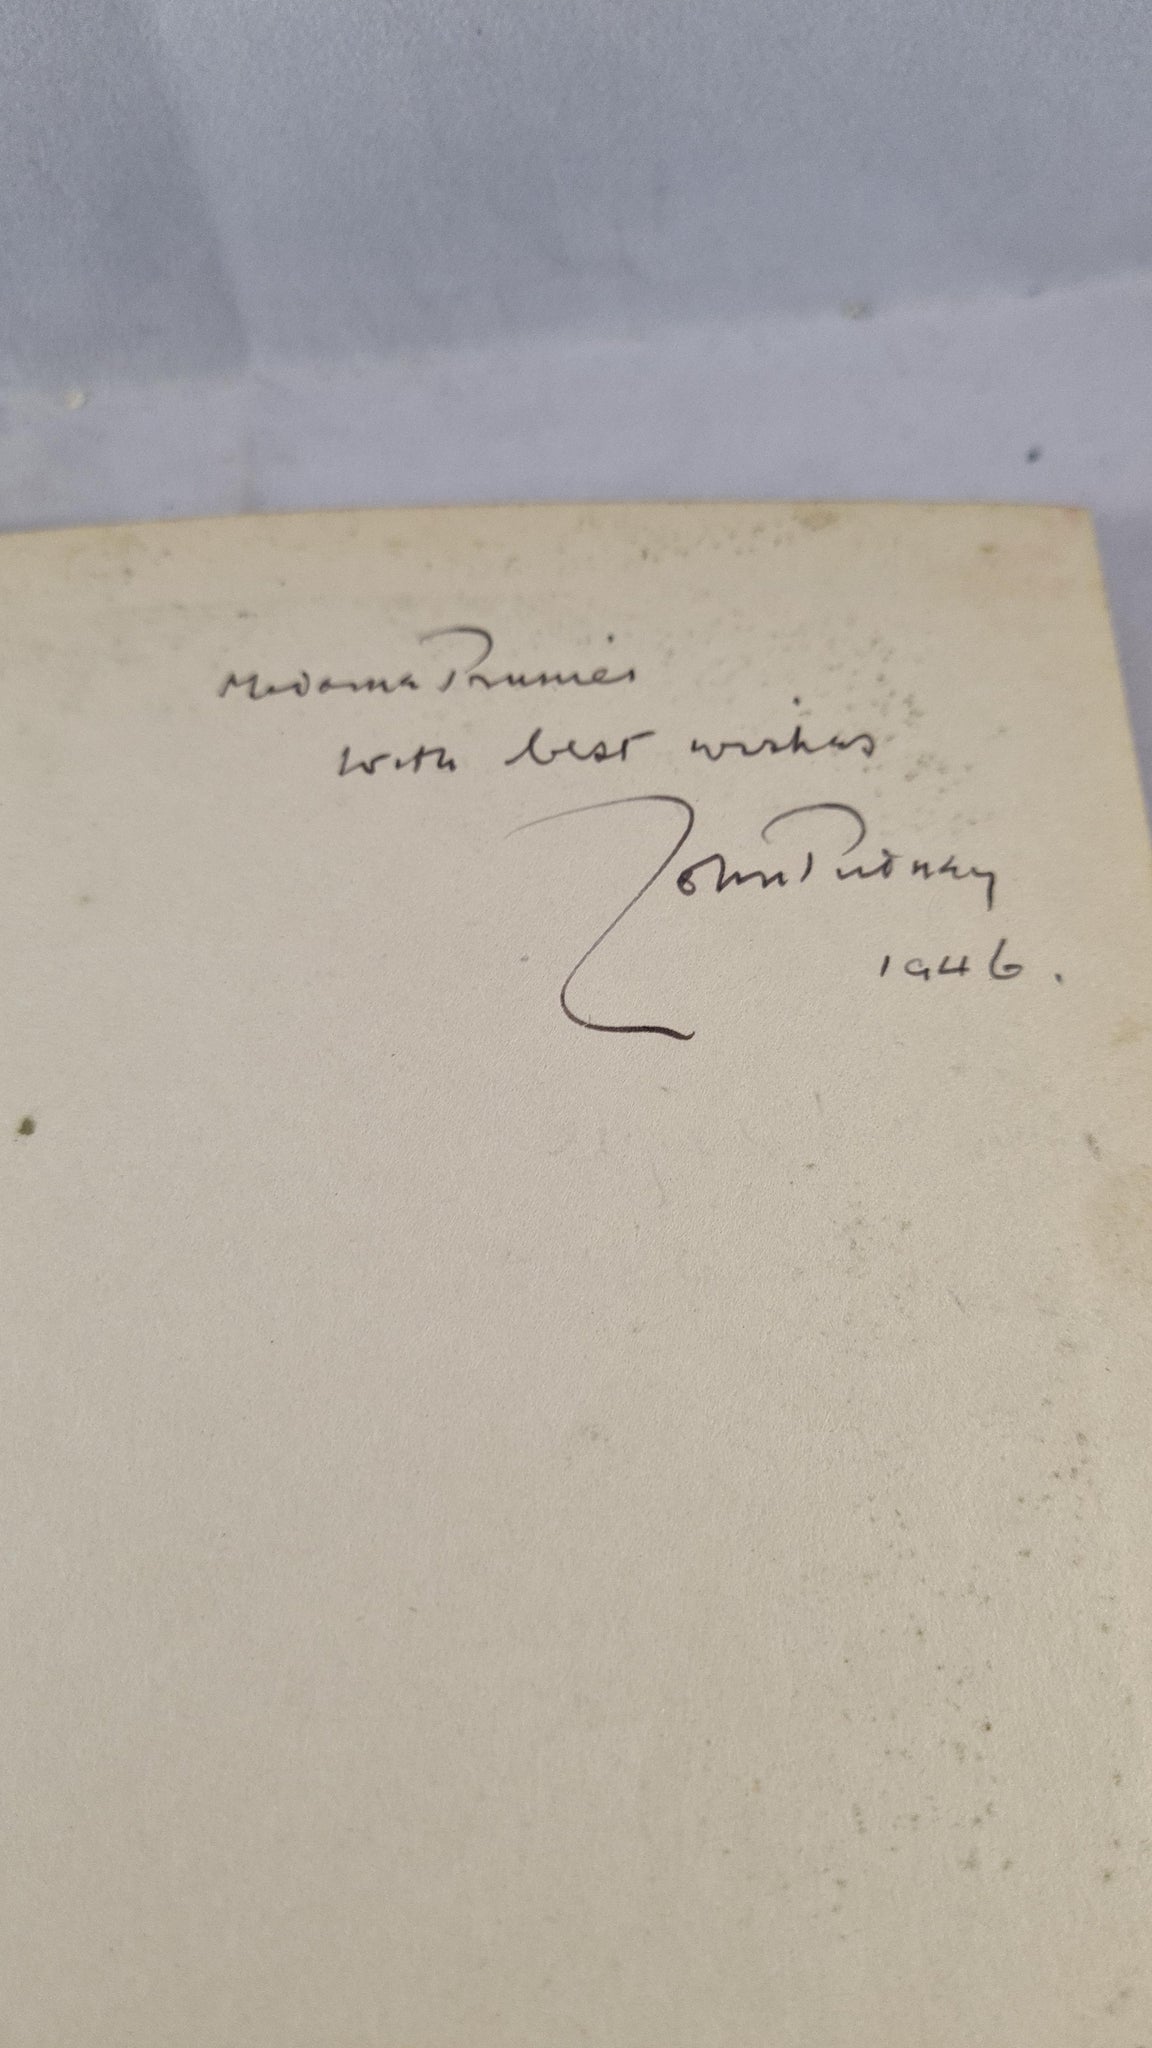 Madame Prunier
with best wishes
John Pudney
1946.